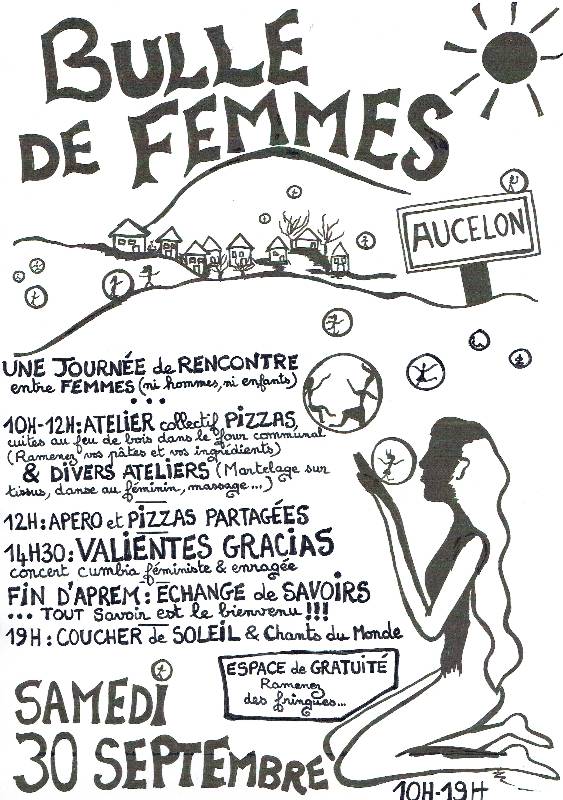 BULLE
DE FEMMES
AUCELON
UNE JOURNÉE de RENCONTRE
entre FEMMES (ni hommes, ni enfants)
...
10H-12H: ATELIER collectif PIZZAS,
cuites au feu de bois dans le four communal
(Ramenez vos pâtes et vos ingrédients)
& DIVERS ATELIERS (Martelage sur
tissus, danse au féminin, massage...)
12H: APERO et PIZZAS PARTAGÉES
14H30: VALIENTES GRACIAS
concert cumbia féministe & enragée
FIN D'APREM: ÉCHANGE de SAVOIRS
... TOUT Savoir est le bienvenu !!!
19H: COUCHER de SOLEIL & Chants du Monde
ESPACE de GRATUITÉ
Ramenez
des fringues...
SAMEDI
30 SEPTEMBRE
10H-19H